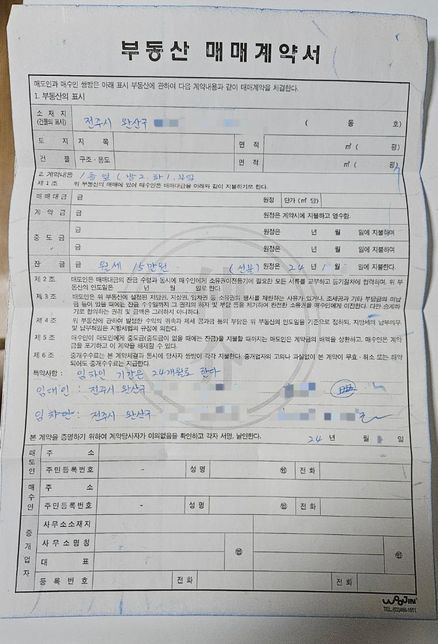 부동산 매매계약서
매도인과 매수인 쌍방은 아래 표시 부동산에 관하여 다음 계약내용과 같이 매매계약을 체결한다.
1. 부동산의 표시
소 재 지
(건물의 표시)
전주시 완산구
( 동 호)
토 지 지 목 면 적 ㎡( 평)
건 물 구조·용도 면 적 ㎡( 평)
2. 계약내용
제 1 조 위 부동산의 매매에 있어 매수인은 매매대금을 아래와 같이 지불하기로 한다.
매매대금 금 원정 단가(㎡당)
계 약 금 금 원정은 계약시에 지불하고 영수함.
중 도 금 금 원정은 년 월 일에 지불하며
금 원정은 년 월 일에 지불하며
잔 금 금 월세 15만원 (선불) 원정은 24년 월 일에 지불한다.
제 2 조 매도인은 매매대금의 잔금 수령과 동시에 매수인에게 소유권이전등기에 필요한 모든 서류를 교부하고 등기절차에 협력하며, 위 부동산의 인도일은 년 월 일로 한다.
제 3 조 매도인은 위 부동산에 설정된 저당권, 지상권, 임차권 등 소유권의 행사를 제한하는 사유가 있거나, 조세공과 기타 부담금의 미납금 등이 있을 때에는 잔금 수수일까지 그 권리의 하자 및 부담 등을 제거하여 완전한 소유권을 매수인에게 이전한다. 다만, 승계하기로 합의하는 권리 및 금액은 그러하지 아니하다.
제 4 조 위 부동산에 관하여 발생한 수익의 귀속과 제세 공과금 등의 부담은 위 부동산의 인도일을 기준으로 정하되, 지방세의 납부의무 및 납부책임은 지방세법의 규정에 의한다.
제 5 조 매수인이 매도인에게 중도금(중도금이 없을 때에는 잔금)을 지불할 때까지는 매도인은 계약금의 배액을 상환하고, 매수인은 계약금을 포기하고 이 계약을 해제할 수 있다.
제 6 조 중개수수료는 본 계약체결과 동시에 당사자 쌍방이 각각 지불한다. 중개업자의 고의나 과실없이 본 계약이 무효·취소 또는 해약되어도 중개수수료는 지급한다.
특약사항 : 임차인 기간은 24개월로 한다
임대인 : 전주시 완산구
임차인 : 전주시 완산구
본 계약을 증명하기 위하여 계약당사자가 이의없음을 확인하고 각자 서명, 날인한다. 24년 월 일
매도인 주 소
주민등록번호 - 성명 ㊞ 전화
매수인 주 소
주민등록번호 - 성명 ㊞ 전화
중개업자 사무소소재지
사무소명칭 ㊞ ㊞
대 표
등 록 번 호 전화 전화
WOOJIN